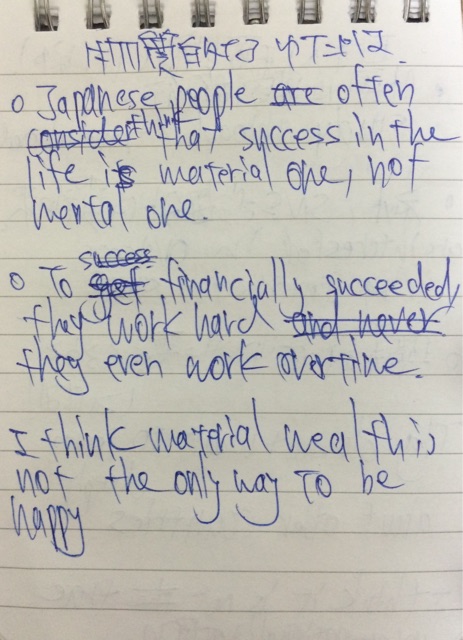 物質的な ゆたかさ
o Japanese people are often
consider think that success in the
life is material one, not
mental one.
success
o To get financially succeeded,
they work hard and never
they even work overtime.
I think material wealth is
not the only way to be
happy